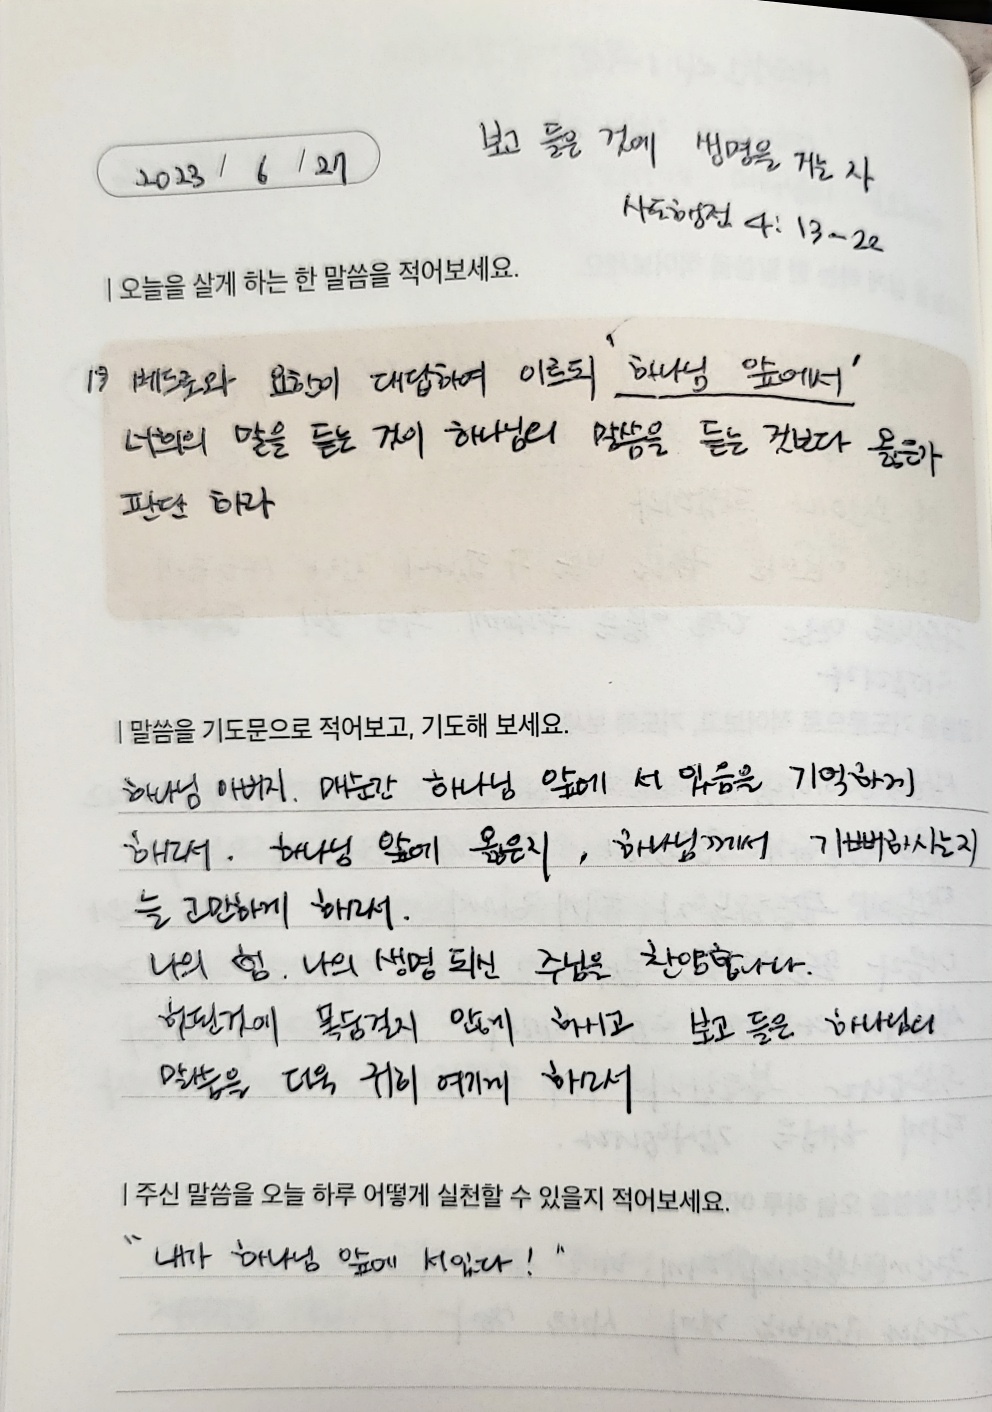 2023 / 6 / 27
보고 들은 것에 생명을 거는 자
사도행전 4: 13~22
오늘을 살게 하는 한 말씀을 적어보세요.
19 베드로와 요한이 대답하여 이르되 '하나님 앞에서'
너희의 말을 듣는 것이 하나님의 말씀을 듣는 것보다 옳은가
판단 하라
말씀을 기도문으로 적어보고, 기도해 보세요.
하나님 아버지. 매순간 하나님 앞에 서 있음을 기억하게
하소서. 하나님 앞에 옳은지, 하나님께서 기뻐하시는지
늘 고민하게 하소서.
나의 힘. 나의 생명 되신 주님을 찬양합니다.
헛된것에 목숨걸지 않게 하시고 보고 들은 하나님의
말씀을 더욱 귀히 여기게 하소서
주신 말씀을 오늘 하루 어떻게 실천할 수 있을지 적어보세요.
"내가 하나님 앞에 서있다!"